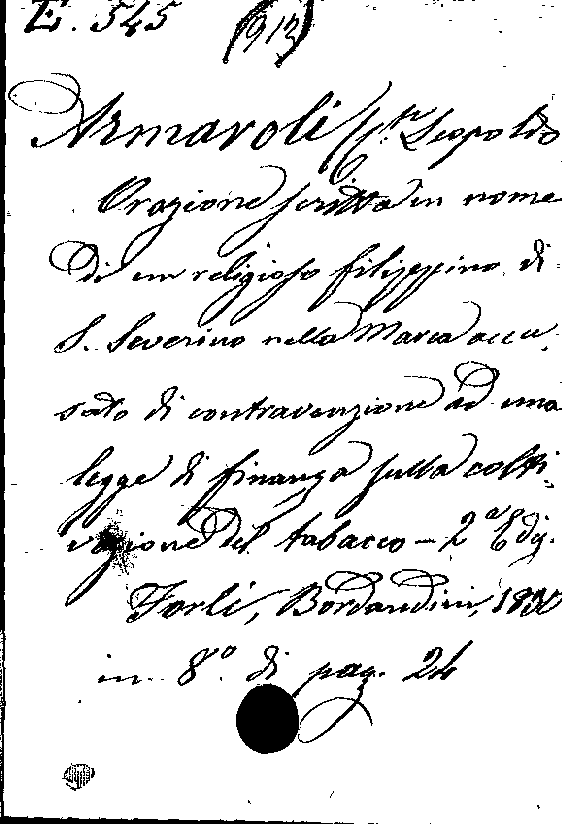 E. 545 (913)
Armaroli Leopoldo
Orazione scritta in nome
di un religioso filippino di
S. Severino nella Marca accu-
sato di contravenzione ad una
legge di finanza sulla colti-
vazione del tabacco - 2ª Ediz.
Forlì, Bordandini, 1830
in 8º. di pag. 24